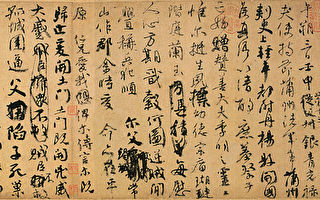 夫使持節蒲州諸軍事蒲州
刺史上輕車都尉丹楊縣開國
侯真卿以清酌庶羞祭于
亡姪贈贊善大夫季明之靈曰
惟爾挺生夙標幼德宗廟瑚璉
階庭蘭玉每慰
人心方期戩穀何圖逆賊閒
釁稱兵犯順爾父竭誠常
山作郡余時受命亦在平
原仁兄愛我俾爾傳言爾既
歸止爰開土門土門既開凶威
大蹙賊臣不救孤
城圍逼父陷子死巢